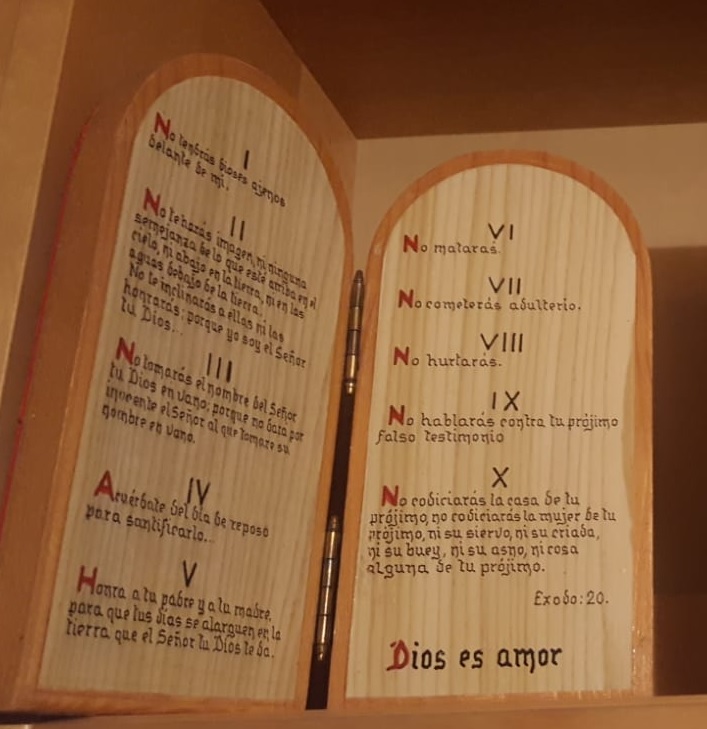 I
No tendrás dioses ajenos
delante de mi.
II
No te harás imagen, ni ninguna
semejanza de lo que esté arriba en el
cielo, ni abajo en la tierra, ni en las
aguas debajo de la tierra.
No te inclinarás a ellas ni las
honrarás; porque yo soy el Señor
tu Dios...
III
No tomarás el nombre del Señor
tu Dios en vano; porque no dará por
inocente el Señor al que tomare su
nombre en vano.
IV
Acuérdate del día de reposo
para santificarlo...
V
Honra a tu padre y a tu madre,
para que tus días se alarguen en la
tierra que el Señor tu Dios te da.
VI
No matarás.
VII
No cometerás adulterio.
VIII
No hurtarás.
IX
No hablarás contra tu prójimo
falso testimonio
X
No codiciarás la casa de tu
prójimo, no codiciarás la mujer de tu
prójimo, ni su siervo, ni su criada,
ni su buey, ni su asno, ni cosa
alguna de tu prójimo.
Exodo: 20.
Dios es amor